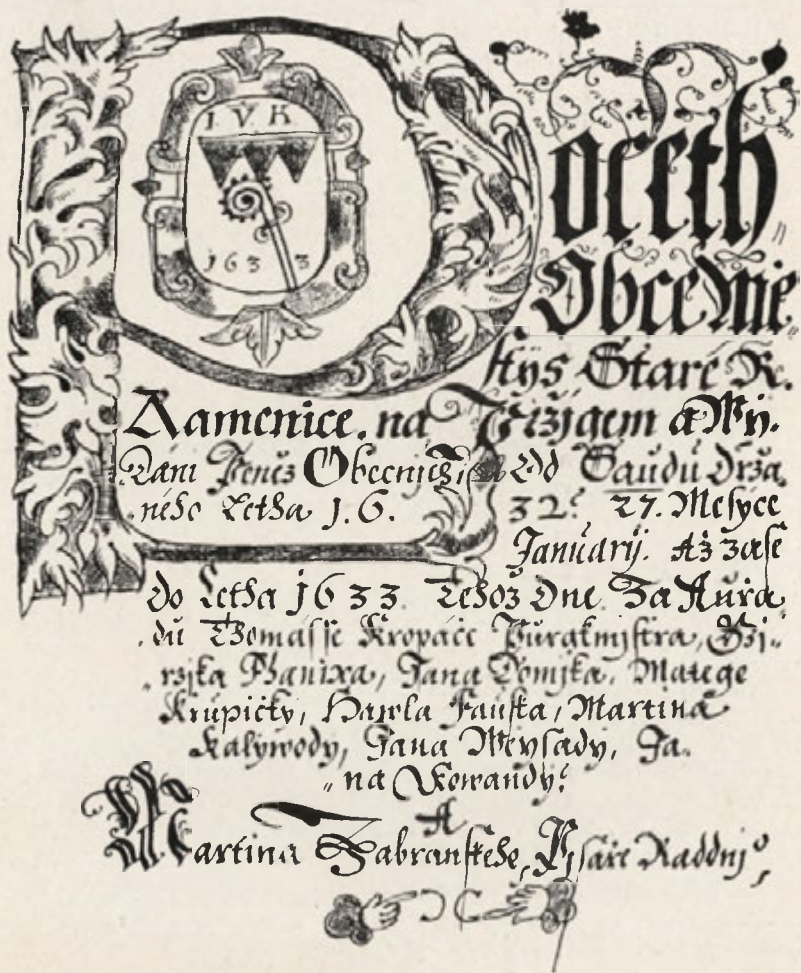 I. V. K
1633
Poceth
Obce Mie
stys Staré R.
Kamenice. na Przigem a Wy.
Dani Peněz Obecnich, Od Saudu Drža
ného Letha 1.6. 32. 27. Mesyce
Januarij. Až zase
do Letha 1633 Téhož Dne. Za Aurža
du Thomasse Kropáče Purgkmistra, Gi..
rzika Hanixa, Jana Domjka, Matege
Krupičky, Hawla Fausta, Martina
Kalywody, Jana Weysady, Ja.
na Kowandy:
A
Martina Zabranského, Pjsaře Raddnj,